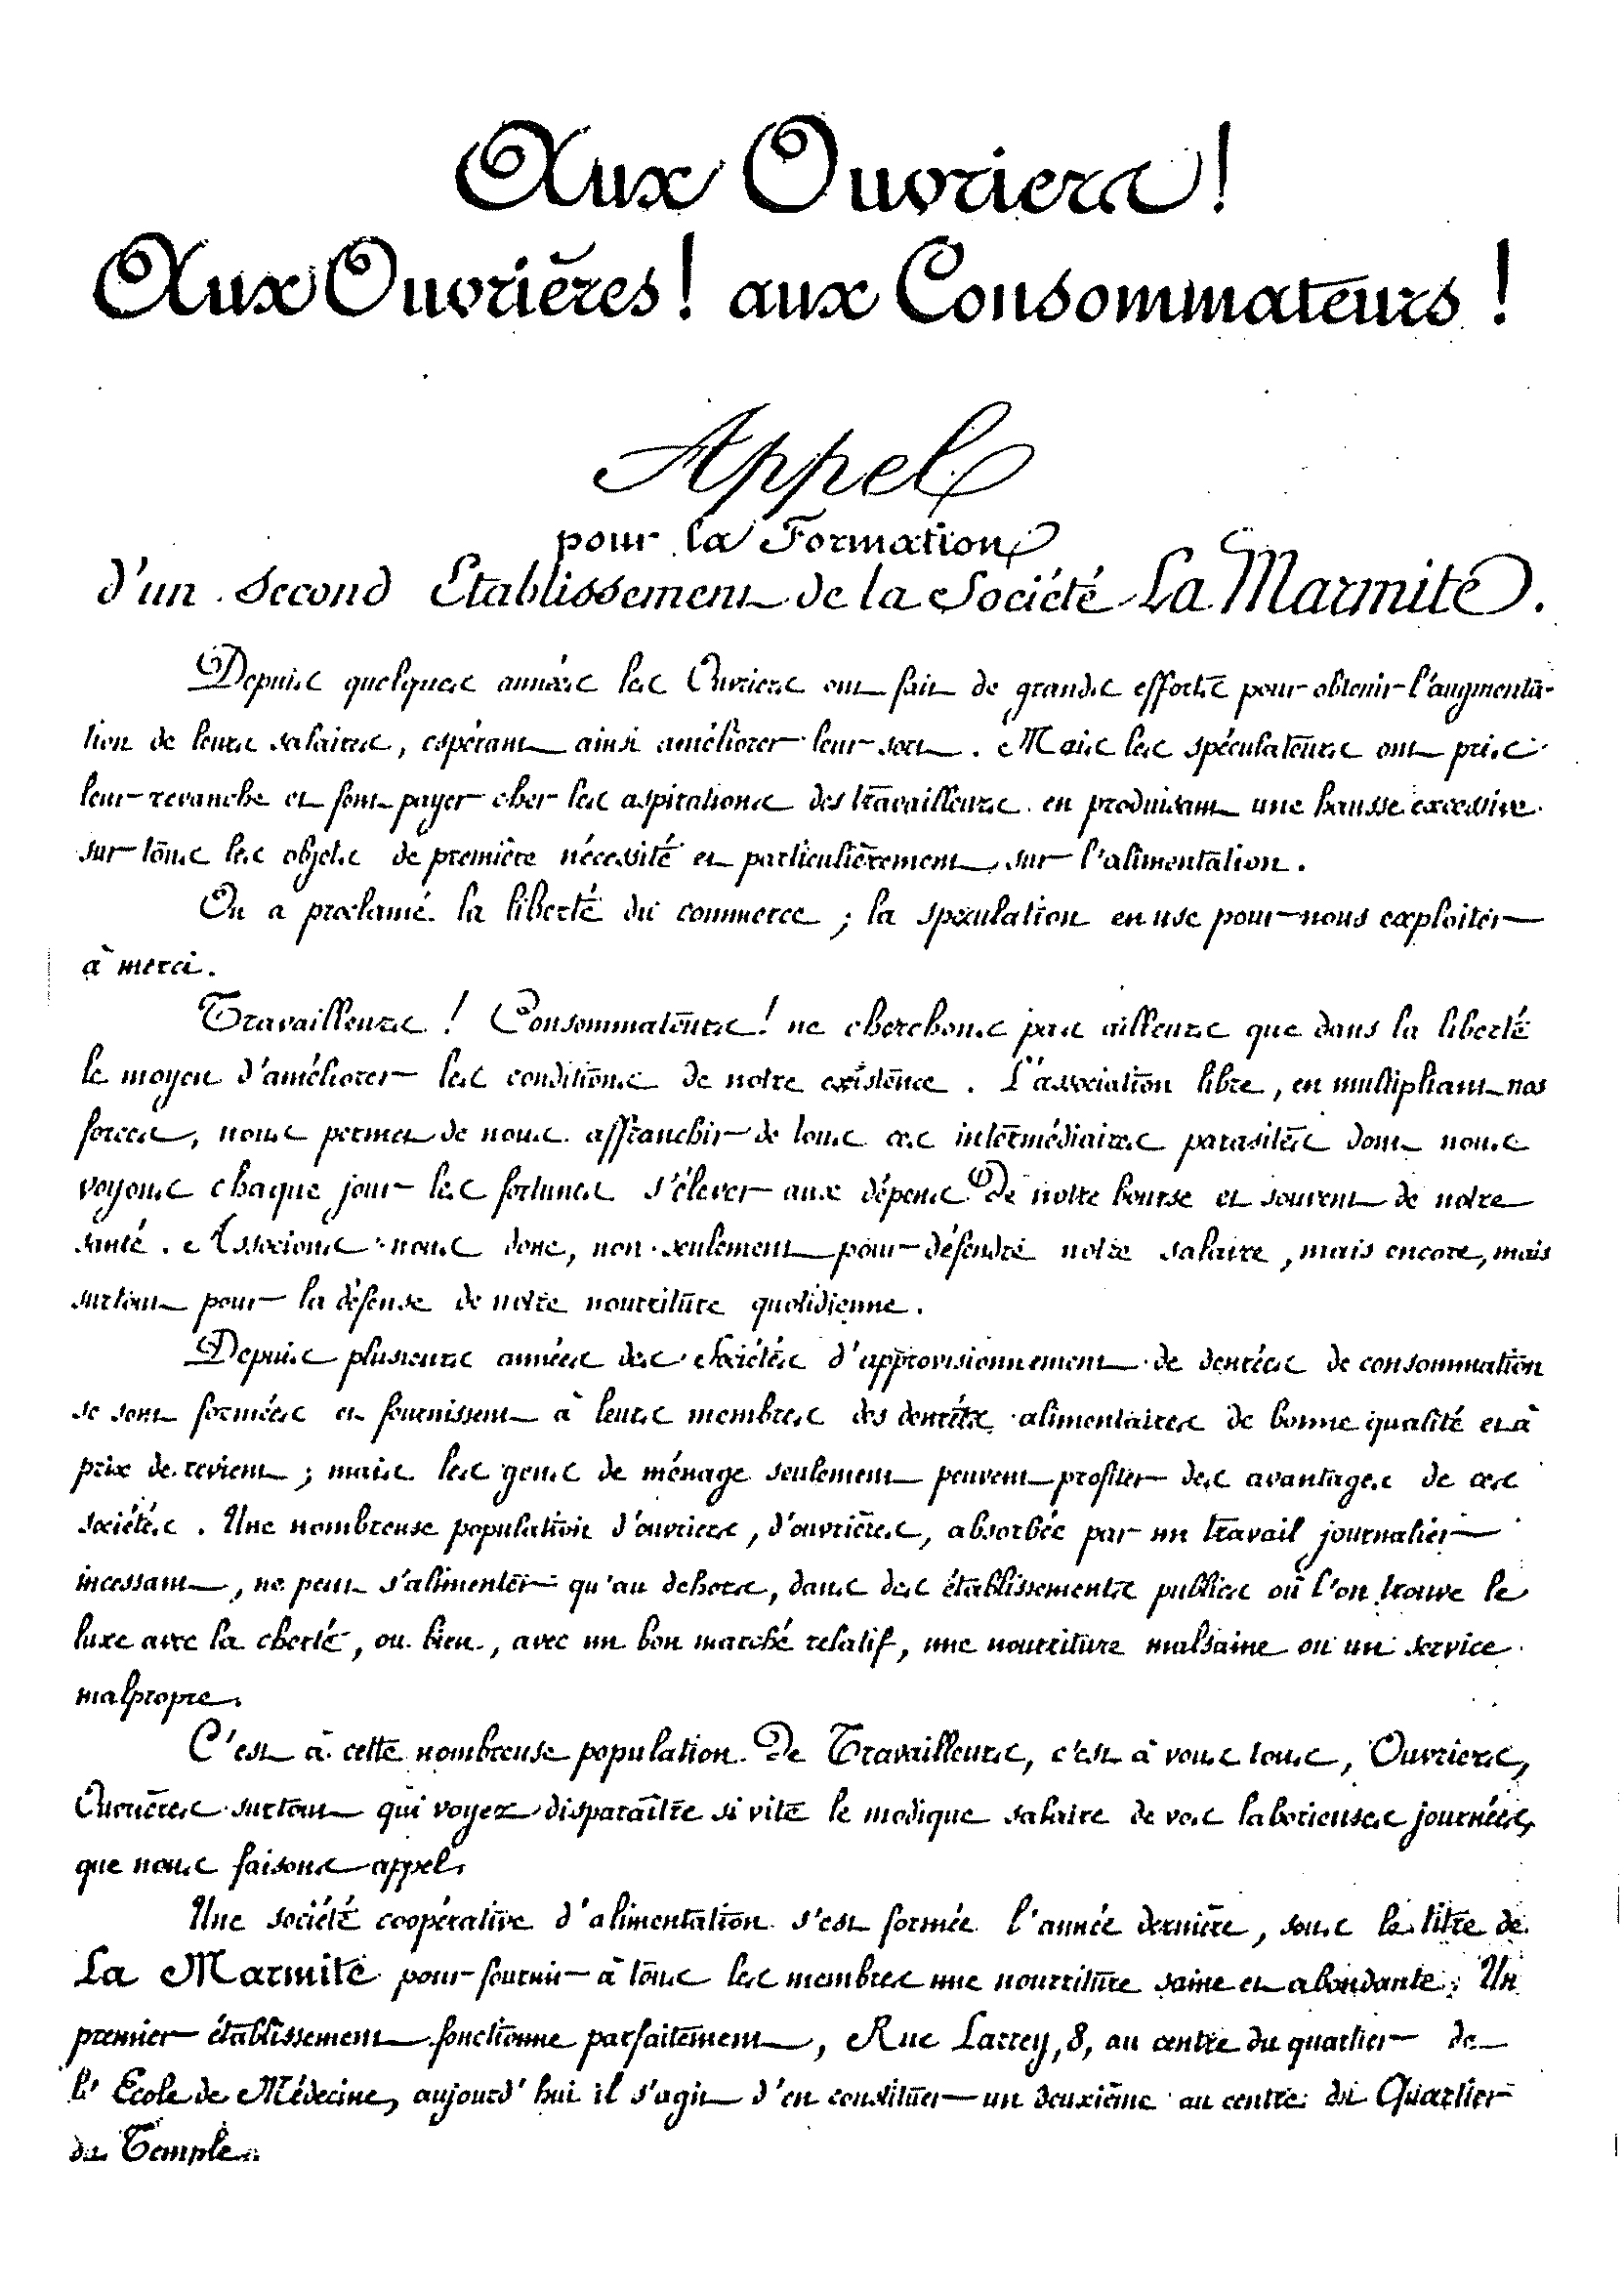 Aux Ouvriers !
Aux Ouvrières ! aux Consommateurs !
Appel
pour la Formation
d'un second Etablissement de la Société La Marmite.
Depuis quelques années les Ouvriers ont fait de grands efforts pour obtenir l'augmenta-
tion de leurs salaires, espérant ainsi améliorer leur sort. Mais les spéculateurs ont pris
leur revanche et font payer cher les aspirations des travailleurs en produisant une hausse excessive
sur tous les objets de première nécessité et particulièrement sur l'alimentation.
On a proclamé la liberté du commerce ; la spéculation en use pour nous exploiter
à merci.
Travailleurs ! Consommateurs ! ne cherchons pas ailleurs que dans la liberté
le moyen d'améliorer les conditions de notre existence. L'association libre, en multipliant nos
forces, nous permet de nous affranchir de tous ces intermédiaires parasites dont nous
voyons chaque jour les fortunes s'élever aux dépens de notre bourse et souvent de notre
santé. Associons-nous donc, non seulement pour défendre notre salaire, mais encore, mais
surtout pour la défense de notre nourriture quotidienne.
Depuis plusieurs années des Sociétés d'approvisionnement de denrées de consommation
se sont formées et fournissent à leurs membres des denrées alimentaires de bonne qualité et à
prix de revient ; mais les gens de ménage seulement peuvent profiter des avantages de ces
sociétés. Une nombreuse population d'ouvriers, d'ouvrières, absorbée par un travail journalier
incessant, ne peut s'alimenter qu'au dehors, dans des établissements publics où l'on trouve le
luxe avec la cherté, ou bien, avec un bon marché relatif, une nourriture malsaine ou un service
malpropre.
C'est à cette nombreuse population de Travailleurs, c'est à vous tous, Ouvriers,
Ouvrières surtout qui voyez disparaître si vite le modique salaire de vos laborieuses journées,
que nous faisons appel.
Une société coopérative d'alimentation s'est formée l'année dernière, sous le titre de
La Marmite pour fournir à tous les membres une nourriture saine et abondante. Un
premier établissement fonctionne parfaitement, Rue Larrey, 8, au centre du quartier de
l'Ecole de Médecine, aujourd'hui il s'agit d'en constituer un deuxième au centre du Quartier
du Temple.